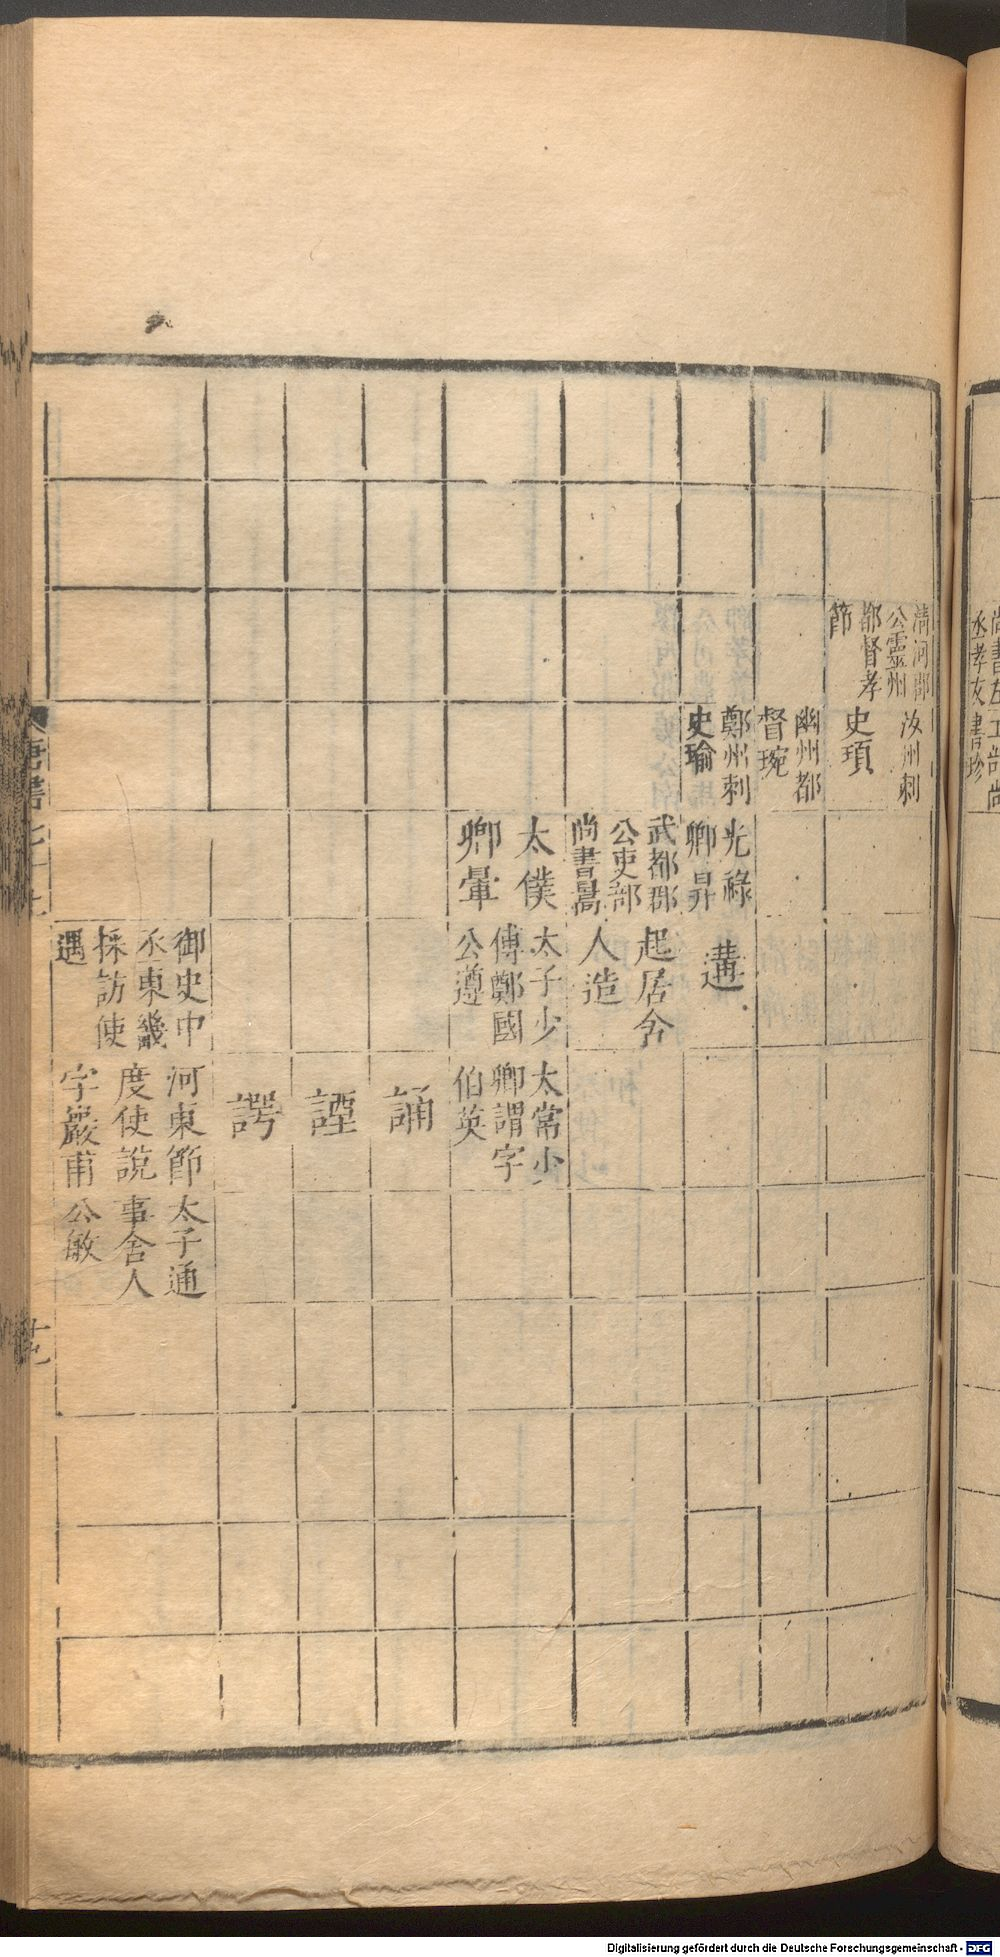 尚書左
丞孝友
工部尚
書珍
清河郡
公靈州
都督孝
節
汝州刺
史頊
幽州都
督琬
鄭州刺
史瑜
光祿
卿昇
遘
武都郡
公吏部
尚書暠
起居舍
人造
太僕
卿暈
太子少
傅鄭國
公遵
太常少
卿謂字
伯英
誦
諲
諤
御史中
丞東畿
採訪使
遇
河東節
度使說
字巖甫
太子通
事舍人
公敏
唐書
Digitalisierung gefördert durch die Deutsche Forschungsgemeinschaft - DFG